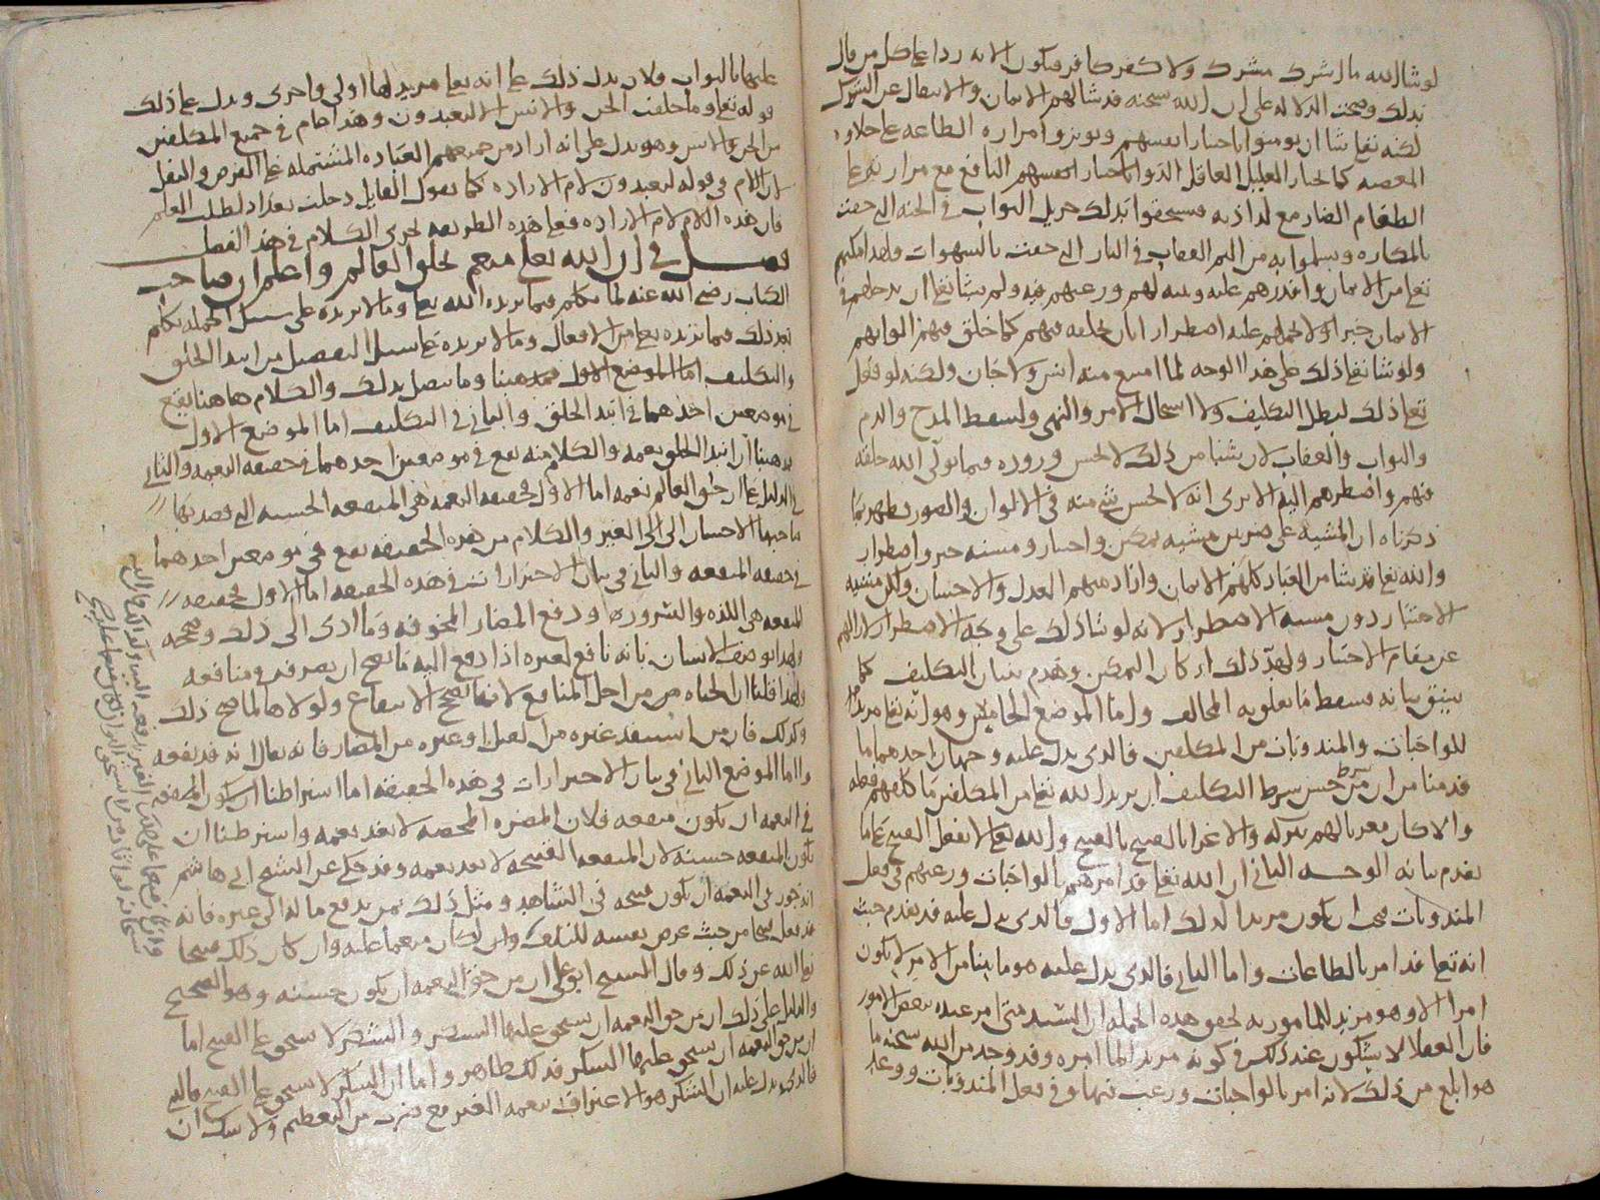 لو شا الله ما اشرك مشرك ولا كفر كافر فيكون الايه ردا على كل من قال
بذلك وصحت الدلاله على ان الله سبحنه قد شا لهم الايمان والانتقال عن الشرك
لكنه تعالى شا ان يومنوا باختيار انفسهم ويوثروا مراره الطاعه على حلاوه
المعصيه كما يختار العليل العاقل الدوا باختيار نفسهم النافع مع مرارته على
الطعام الضار مع لذاذته فيستحقوا بذلك جزيل الثواب في الجنه التي حفت
بالمكاره ويسلموا به من اليم العقاب في النار التي حفت بالشهوات ولهذا مكنهم
تعالى من الايمان واقدرهم عليه وبينه لهم ورغبهم فيه ولم يشا تعالى ان يدخلهم في
الايمان جبرا ولا يحملهم عليه اضطرارا بان يخلقه فيهم كما خلق فيهم الوانهم
ولو شا تعالى ذلك على هذا الوجه لما امتنع منه انس ولا جان ولكنه لو فعل
تعالى ذلك لبطل التكليف ولاستحال الامر والنهي ولسقط المدح والذم
والثواب والعقاب لان شيا من ذلك لا يحسن وروده فيما تولى الله خلقه
فيهم واضطرهم اليه الا ترى انه لا يحسن شي منه في الالوان والصور فظهر بما
ذكرناه ان المشيه على ضربين مشيه تمكين واختيار ومشيه جبر واضطرار
والله تعالى قد شا من العباد كلهم الايمان واراد منهم العدل والاحسان ولكن مشيه
الاختيار دون مشيه الاضطرار لانه لو شا ذلك على وجه الاضطرار لازالهم
عن مقام الاختيار ولهدّ ذلك اركان التمكين وهدم بنيان التكليف كما
سبق بيانه فسقط ما تعلق به المخالف واما الموضع الخامس وهو انه تعالى مريد
للواجبات والمندوبات من المكلفين فالذي يدل عليه وجهان احدهما ما
قدمنا من ان من حسن شرط التكليف ان يريد الله تعالى من المكلفين ما كلفهم فعله
والا كان مغريا لهم بتركه والاغرا بالقبيح والله تعالى لا يفعل القبيح على ما
تقدم بيانه الوجه الثاني ان الله تعالى قد امرهم بالواجبات ورغبهم في فعل
المندوبات فيجب ان يكون مريدا لذلك اما الاول فالذي يدل عليه قد تقدم حيث
انه تعالى قد امر بالطاعات واما الثاني فالذي يدل عليه هو ما بينا من الامر لا يكون
امرا الا وهو مريد للمامور به يحقق هذه الجمله ان السيد متى امر عبده ببعض الامور
فان العقلا لا يشكون عند ذلك في كونه مريدا لما امره وقد وجد من الله سبحنه ما
هو ابلغ من ذلك لانه امر بالواجبات ورغب فيها وفي فعل المندوبات ووعد
عليهما بالثواب فلان يدل ذلك على انه تعالى مريد لها اولى واحرى ويدل على ذلك
قوله تعالى وما خلقت الجن والانس الا ليعبدون وهذا عام في جميع المكلفين
من الجن والانس وهو يدل على انه اراد من جميعهم العباده المشتمله على الفرض والنفل
لان اللام في قوله ليعبدون لام الاراده كما يقول القايل دخلت بغداد لطلب العلم
فان هذه اللام لام الاراده فعلى هذه الطريقه يجري الكلام في هذا الفصل
فصل في ان الله تعالى منعم بخلق العالم واعلم ان صاحب
الكتاب رضي الله عنه لما تكلم فيما يريده الله تعالى وما لا يريده على سبيل الجمله تكلم
بعد ذلك فيما يريده تعالى من الافعال وما لا يريده على سبيل التفصيل من ابتدا الخلق
والتكليف اما الموضع الاول فمذهبنا وما يتصل بذلك والكلام هاهنا يقع
في موضعين احدهما في ابتدا الخلق والثاني في التكليف اما الموضع الاول
فمذهبنا ان ابتدا الخلق نعمه والكلام منه يقع في موضعين احدهما في حقيقه النعمه والثاني
في الدليل على ان خلق العالم نعمه اما الاول فحقيقه النعمه هي المنفعه الحسنه التي قصد بها
فاعلها الاحسان الى الغير والكلام من هذه الحقيقه يقع في موضعين احدهما
في حقيقه المنفعه والثاني في بيان الاحترازات في هذه الحقيقه اما الاول فحقيقه
المنفعه هي اللذه والسرور او دفع المضار المخوفه وما ادى الى ذلك وصححه
ولهذا يوصف الانسان بانه نافع لغيره اذا دفع اليه ما يصح ان يصرفه في منافعه
ولهذا قلنا ان الحياه من اجل المنافع لانها تصحح الانتفاع ولولاها لما صح ذلك
وكذلك فان من استنقذ غيره من القتل او غيره من المضار فانه يقال انه قد نفعه
واما الموضع الثاني في بيان الاحترازات في هذه الحقيقه اما اشتراطنا ان يكون المنفعه
في النعمه ان يكون منفعه فلان المضره المحضه لا تعد نعمه واشترطنا ان
يكون المنفعه حسنه لان المنفعه القبيحه لا تعد نعمه وقد حكي عن الشيخ ابي هاشم
انه جوز في النعمه ان يكون قبيحه في الشاهد ومثل ذلك بمن يدفع مالا الى غيره فانه
قد فعل قبيحا من حيث عرض نفسه للتلف وان كان منعما عليه وان كان ذلك قبيحا
تعالى الله عن ذلك وقال الشيخ ابو علي ان من حق النعمه ان يكون حسنه وهو الصحيح
والدليل على ذلك ان من حق النعمه ان يستحق عليها الشكر والشكر لا يستحق على القبيح اما
ان من حق النعمه ان يستحق عليها الشكر فذلك ظاهر واما ان الشكر لا يستحق على القبيح
فالذي يدل عليه ان الشكر هو الاعتراف بنعمه الغير مع ضرب من التعظيم ولا شك ان